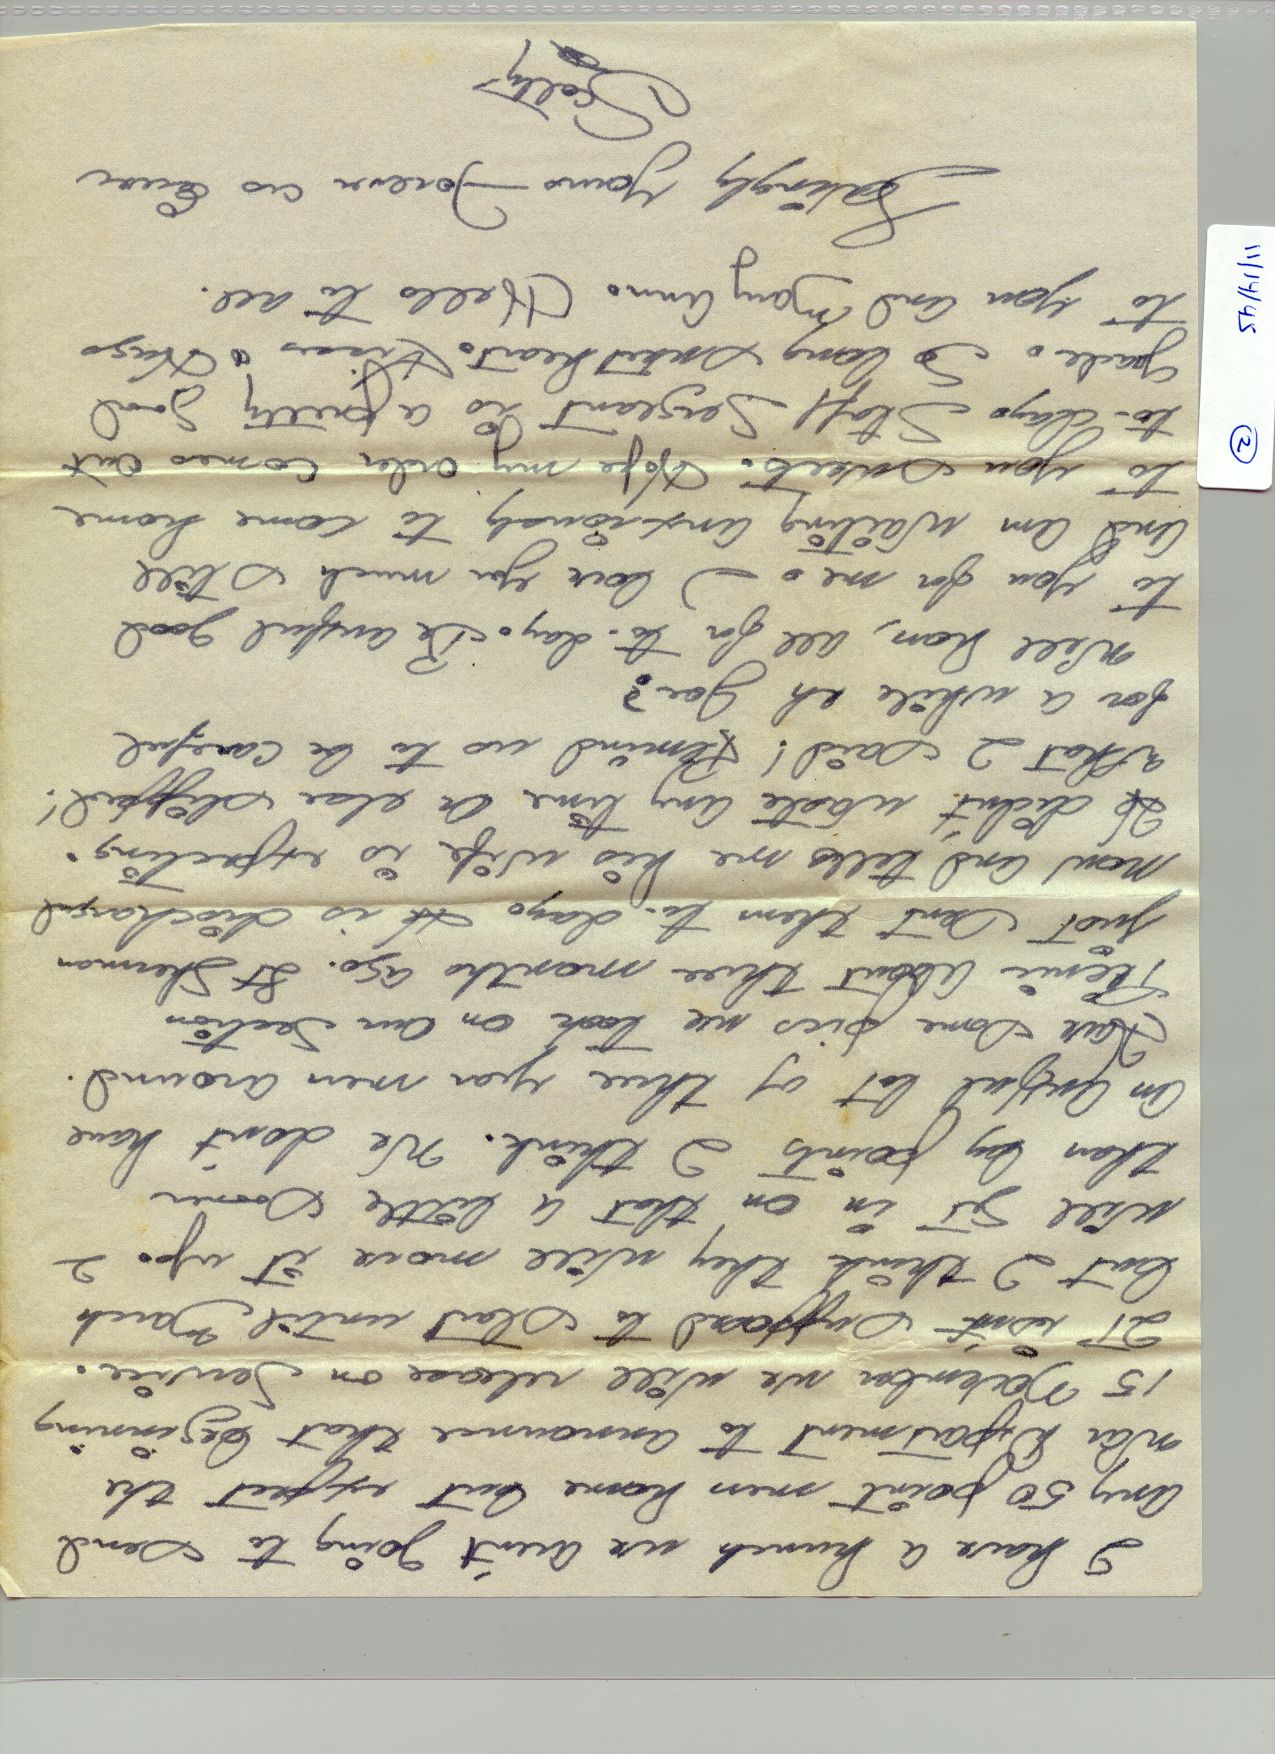 I have a hunch we ain't going to send
any 50 point men home but expect the
War Department to announce that beginning
15 November we will release on Service.
It isn't supposed to start until March
but I think they will move it up. I
will get in on that a little sooner
than by points I think. We don't have
an awful lot of three year men around.
Have some pics we took on our section
Picnic about three months ago. Lt Sherman
just sent them to-day. He is discharged
now and tells me his wife is expecting.
He didn't waste any time or else slipped!
What I said! Remind us to be careful
for a while eh Gae?
Well hon, all for to-day. Be awful good
to you for me. I love you much still
and am waiting anxiously to come home
to you sweets. Hope my order comes out
to-day. Staff Sergeant is a pretty good
grade. So long sweetheart. Kisses & Hugs
to you and Mary Ann. Hello to all.
Lovingly Yours Forever as Ever
Scotty
11/14/45
2